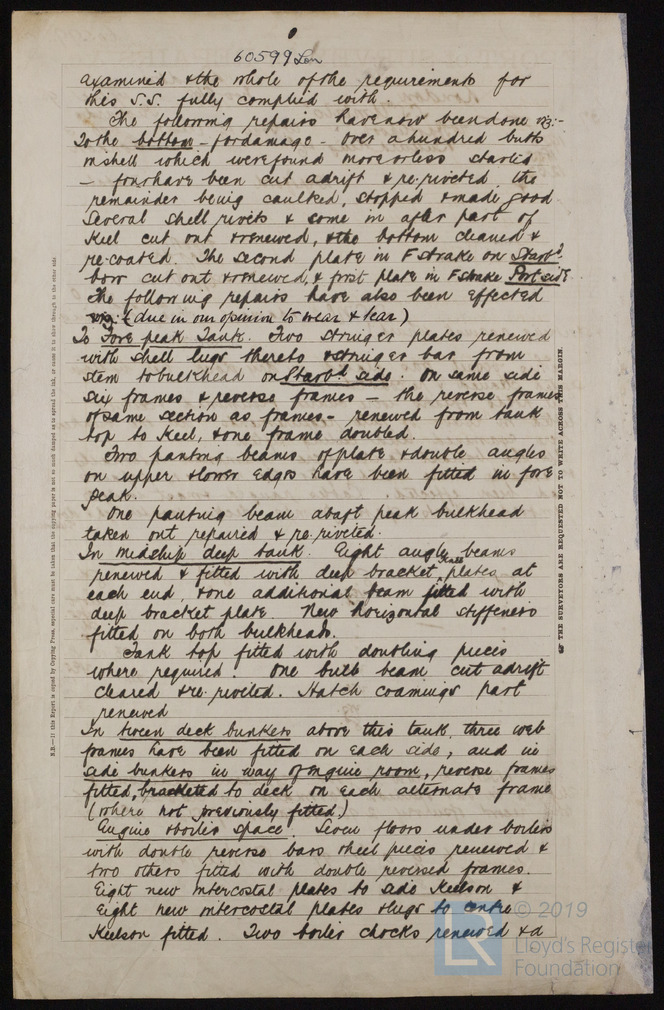 60599 Lon
examined & the whole of the requirements for
this S.S. fully complied with.
The following repairs have now been done viz:-
To the bottom - for damage - Over a hundred butts
in shell which were found more or less started
- four have been cut adrift & re-riveted the
remainder being caulked, stopped & made good
Several shell rivets & some in after part of
Keel cut out & renewed, & the bottom cleaned &
re-coated. The second plate in F strake on Starbd
bow cut out & renewed, & first plate in F strake Port side
The following repairs have also been effected
viz: (due in our opinion to wear & tear)
To Fore peak Tank. Two stringer plates renewed
with shell lugs thereto & stringer bar from
stem to bulkhead on Starbd side. On same side
six frames & reverse frames - the reverse frames
of same section as frames - renewed from tank
top to Keel, & one frame doubled.
Two panting beams of plate & double angles
on upper & lower edges have been fitted in fore
peak.
One panting beam abaft peak bulkhead
taken out repaired & re-riveted.
In midship deep tank. Eight angle beams
renewed & fitted with deep bracket plates at
each end, & one additional beam fitted with
deep bracket plate. New horizontal stiffeners
fitted on both bulkheads.
Tank top fitted with doubling pieces
where required. One bulb beam cut adrift
cleared & re-riveted. Hatch coamings part
renewed
In tween deck bunkers above this tank, three web
frames have been fitted on each side, and in
side bunkers in way of engine room, reverse frames
fitted, bracketed to deck on each alternate frame
(where not previously fitted)
Engine & boiler space. Seven floors under boilers
with double reverse bars & heel pieces renewed &
two others fitted with double reversed frames.
Eight new intercostal plates to side Keelson &
Eight new intercostal plates & lugs to centre
Keelson fitted. Two boiler chocks renewed & a
N.B.—If this Report is copied by Copying Press, especial care must be taken that the copying paper is not so much damped as to spread the ink, or cause it to show through to the other side
THE SURVEYORS ARE REQUESTED NOT TO WRITE ACROSS THIS MARGIN.
LR
© 2019
Lloyd's Register
Foundation